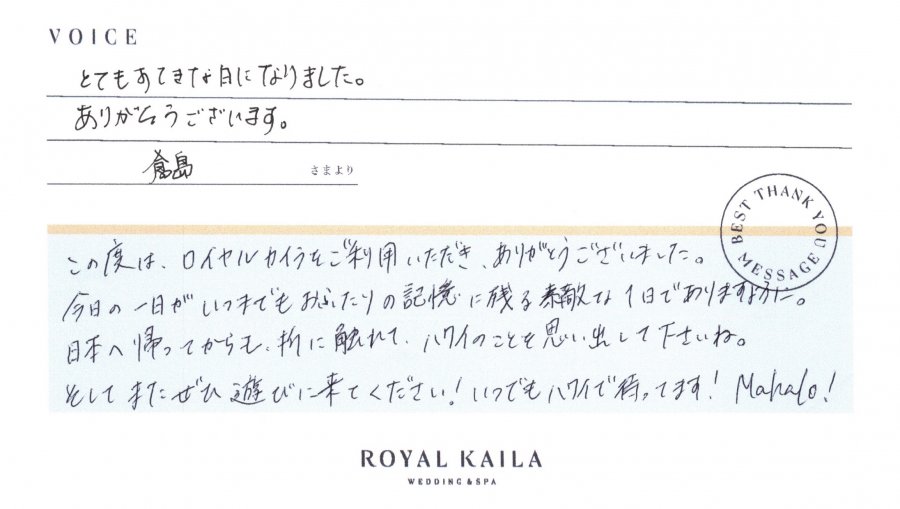 VOICE
とてもすてきな日になりました。
ありがとうございます。
倉島
さまより
BEST THANK YOU MESSAGE
この度は、ロイヤルカイラをご利用いただき、ありがとうございました。
今日の一日がいつまでもおふたりの記憶に残る素敵な1日でありますように。
日本へ帰ってからも、折に触れて、ハワイのことを思い出して下さいね。
そしてまたぜひ遊びに来てください！いつでもハワイで待ってます！Mahalo！
ROYAL KAILA
WEDDING & SPA